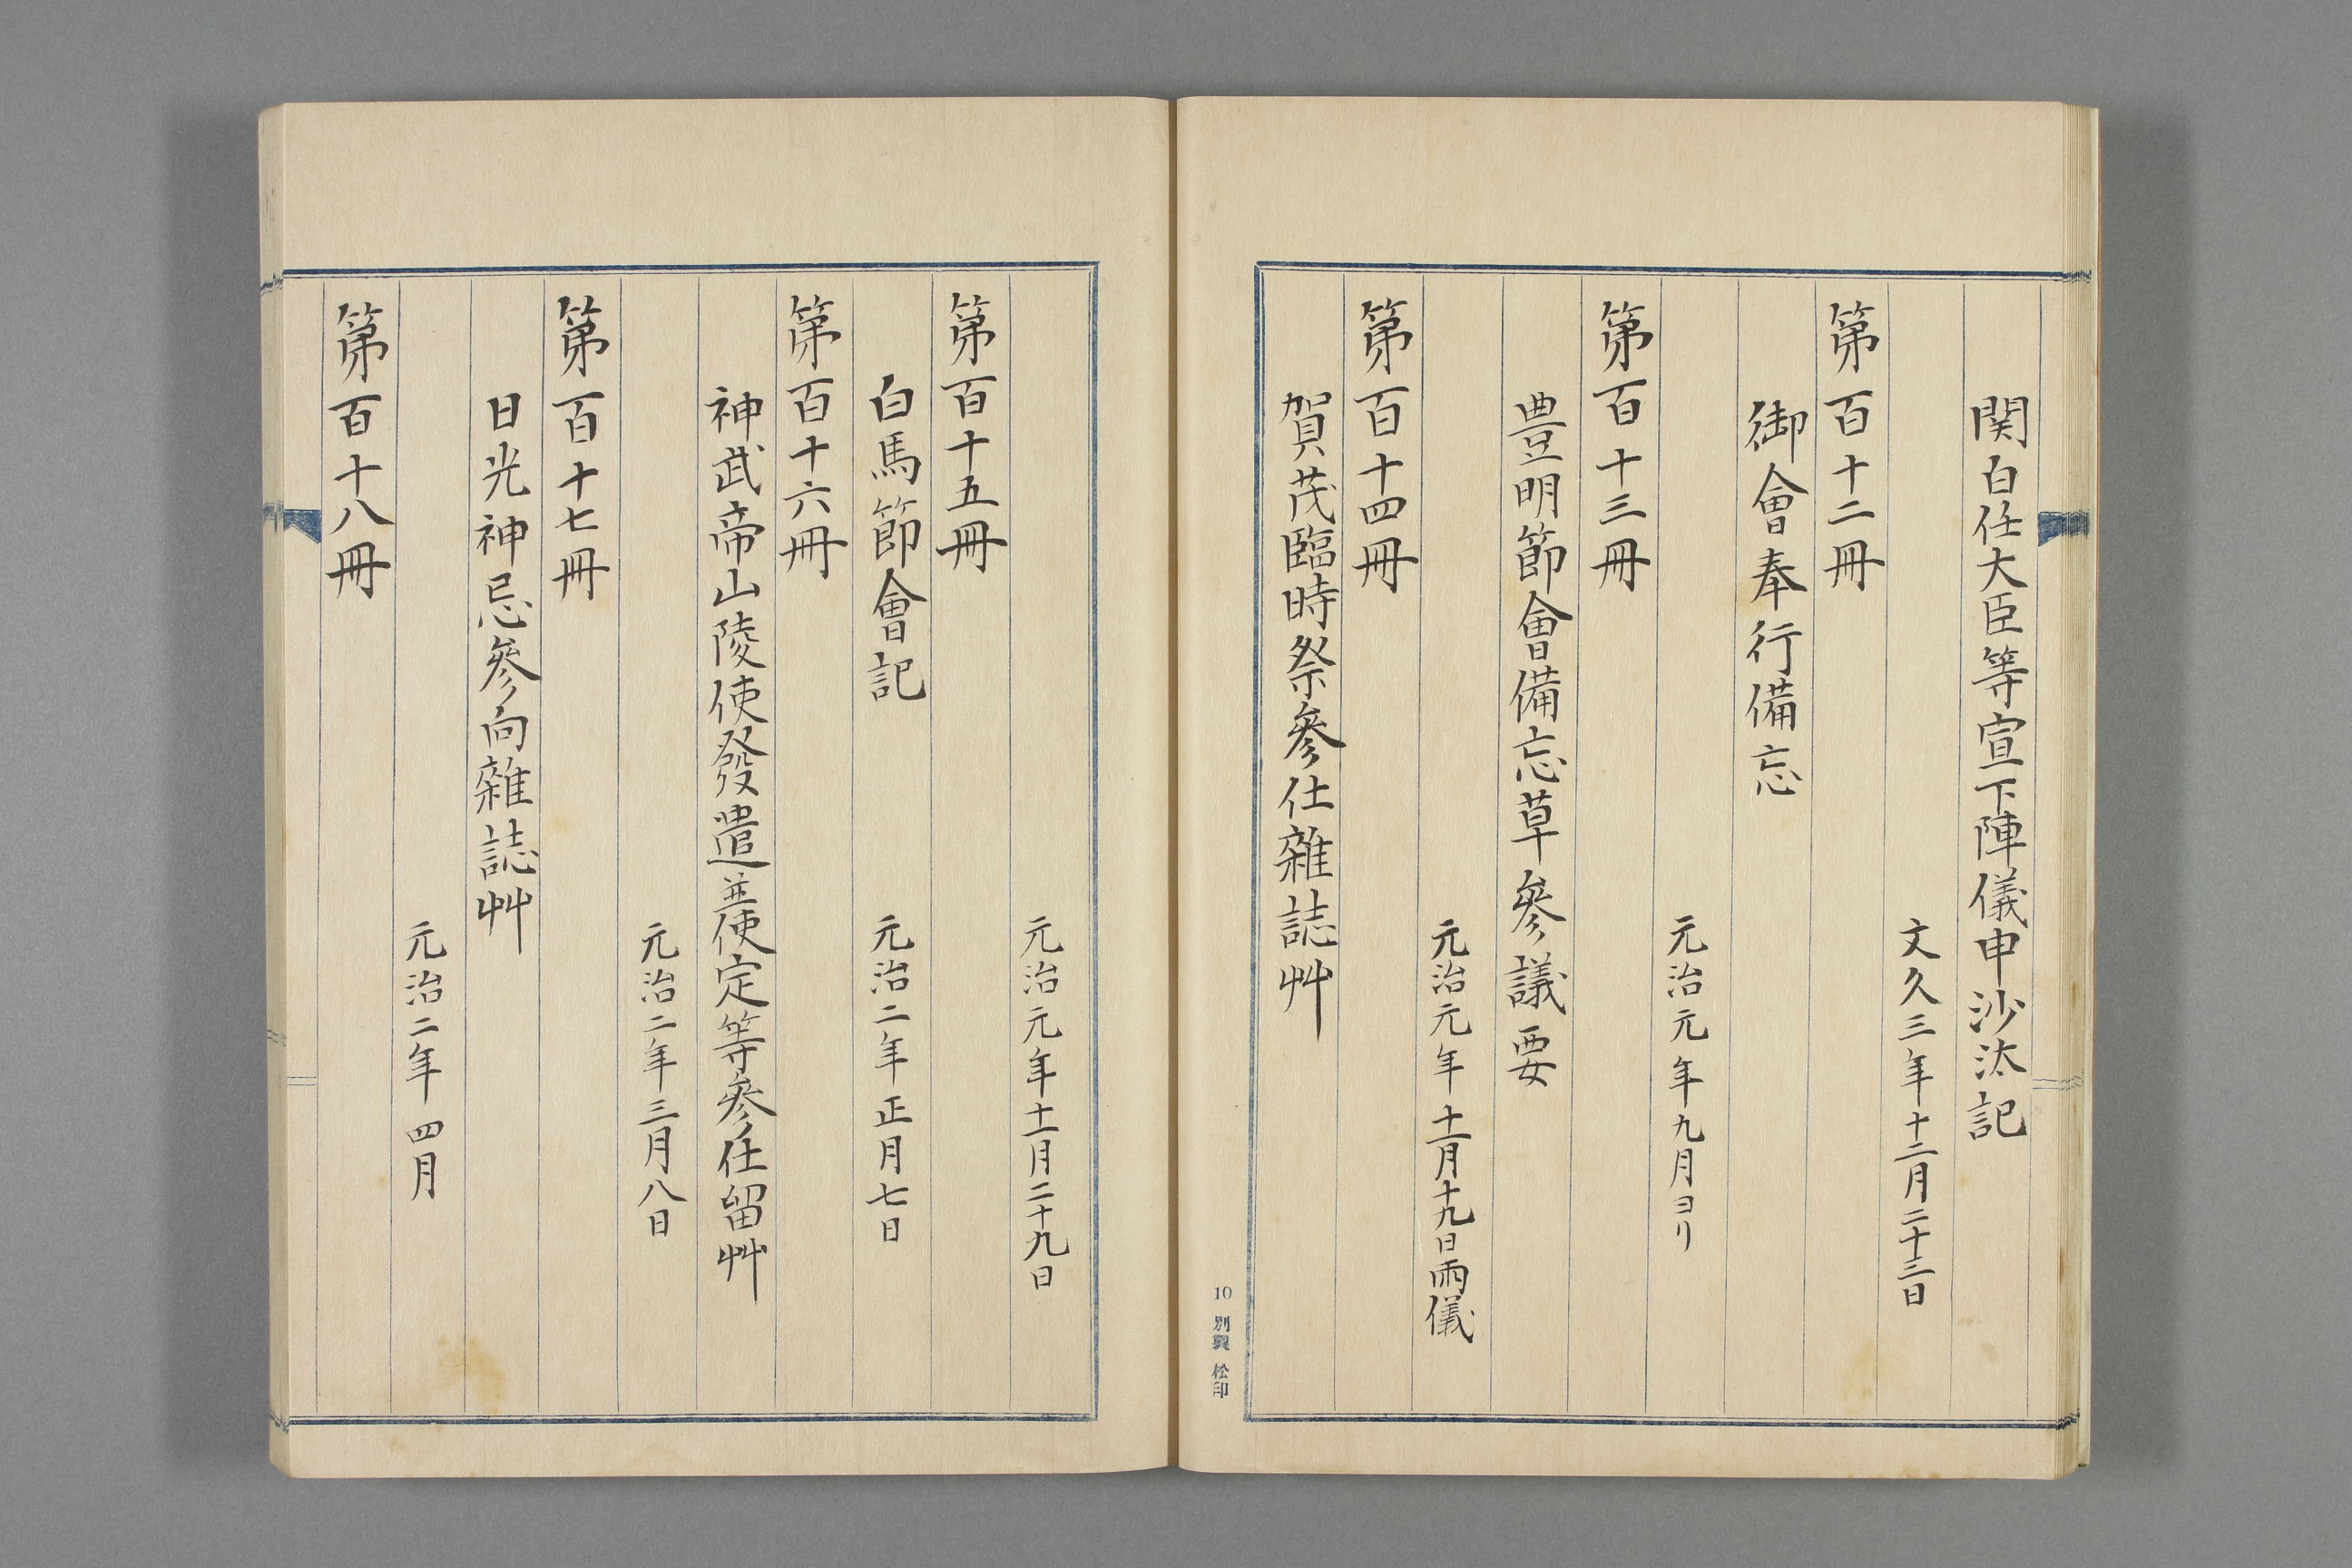 関白任大臣等宣下陣儀申沙汰記
文久三年十二月二十三日
第百十二冊
御會奉行備忘
元治元年九月ヨリ
第百十三冊
豊明節會備忘草參議要
元治元年十一月十九日雨儀
第百十四冊
賀茂臨時祭參仕雜誌艸
10 別製 松印
元治元年十一月二十九日
第百十五冊
白馬節會記
元治二年正月七日
第百十六冊
神武帝山陵使發遣並使定等參仕留艸
元治二年三月八日
第百十七冊
日光神忌參向雜誌艸
元治二年四月
第百十八冊